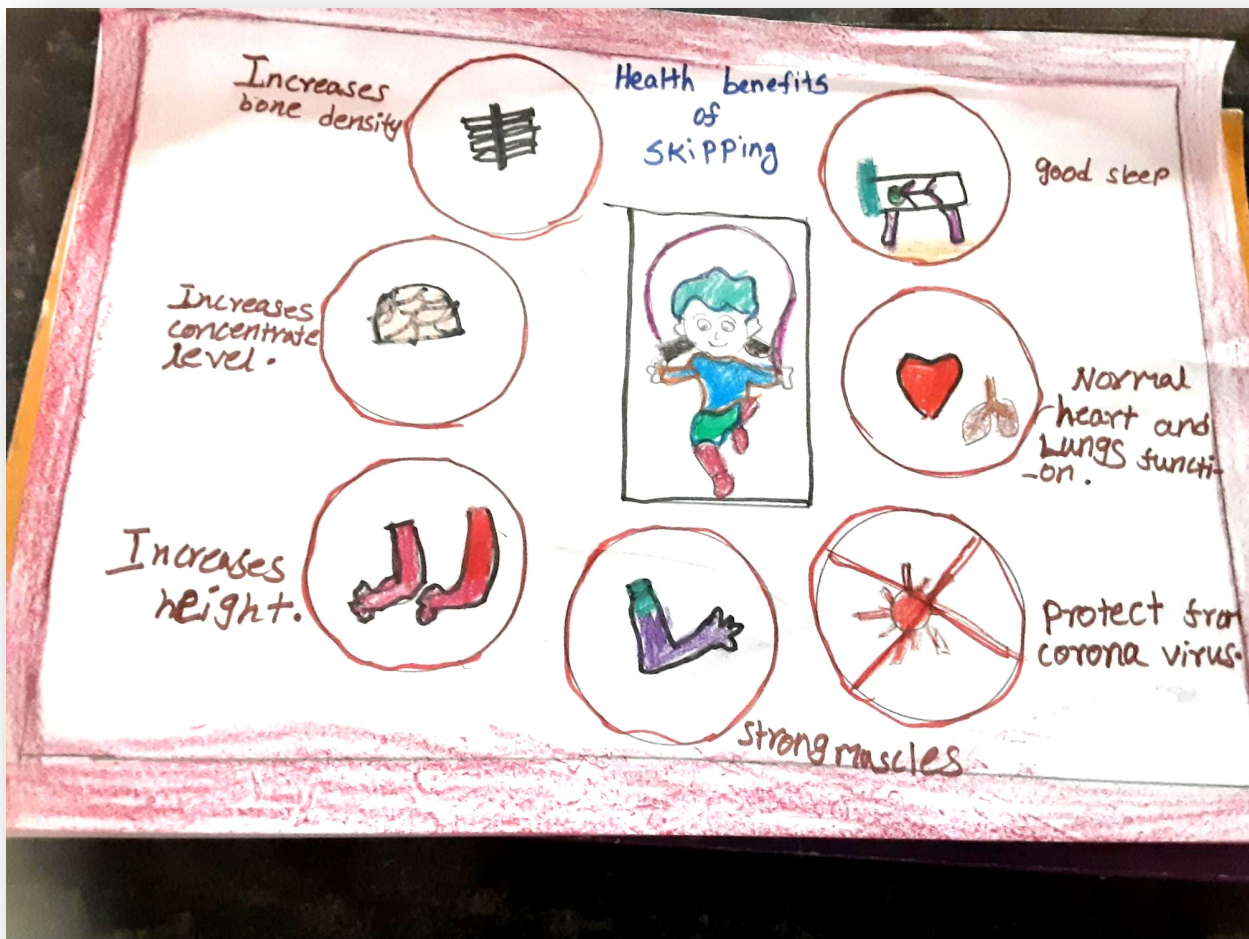 Health benefits
of
SKiPPing
Increases
bone density
good sleep
Increases
concentrate
level.
Normal
heart and
Lungs functi-
-on.
Increases
height.
Protect fro
corona virus.
strong muscles